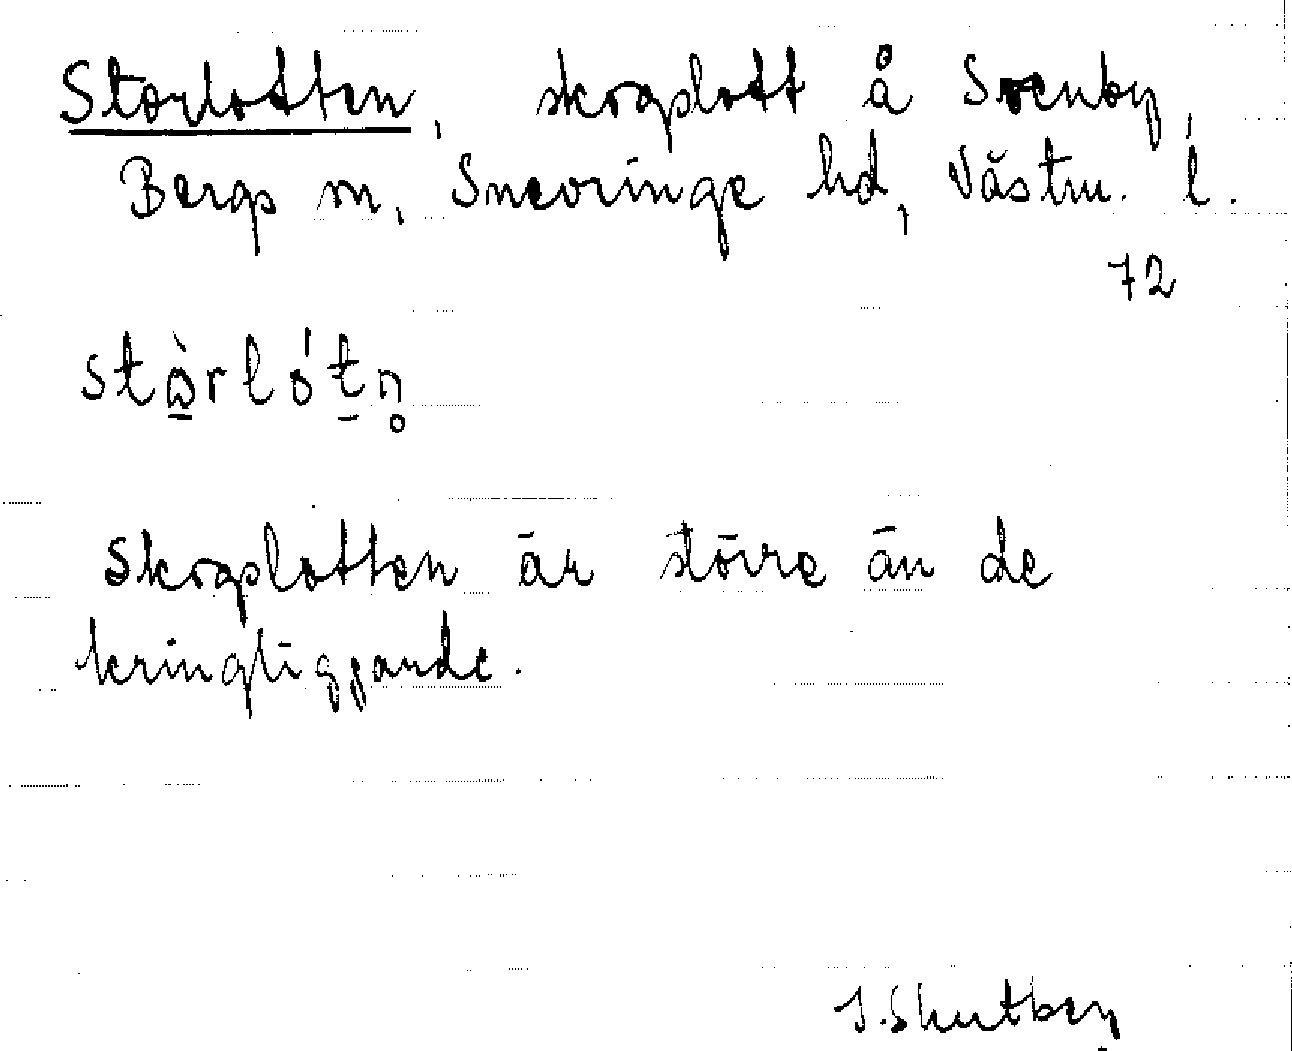 Storlotten, skogslott å Svenby,
Bergs sn, Snevringe hd, Västm. l.
72
stɷ̀rlót̠n̥
Skogslotten är större än de
kringliggande.